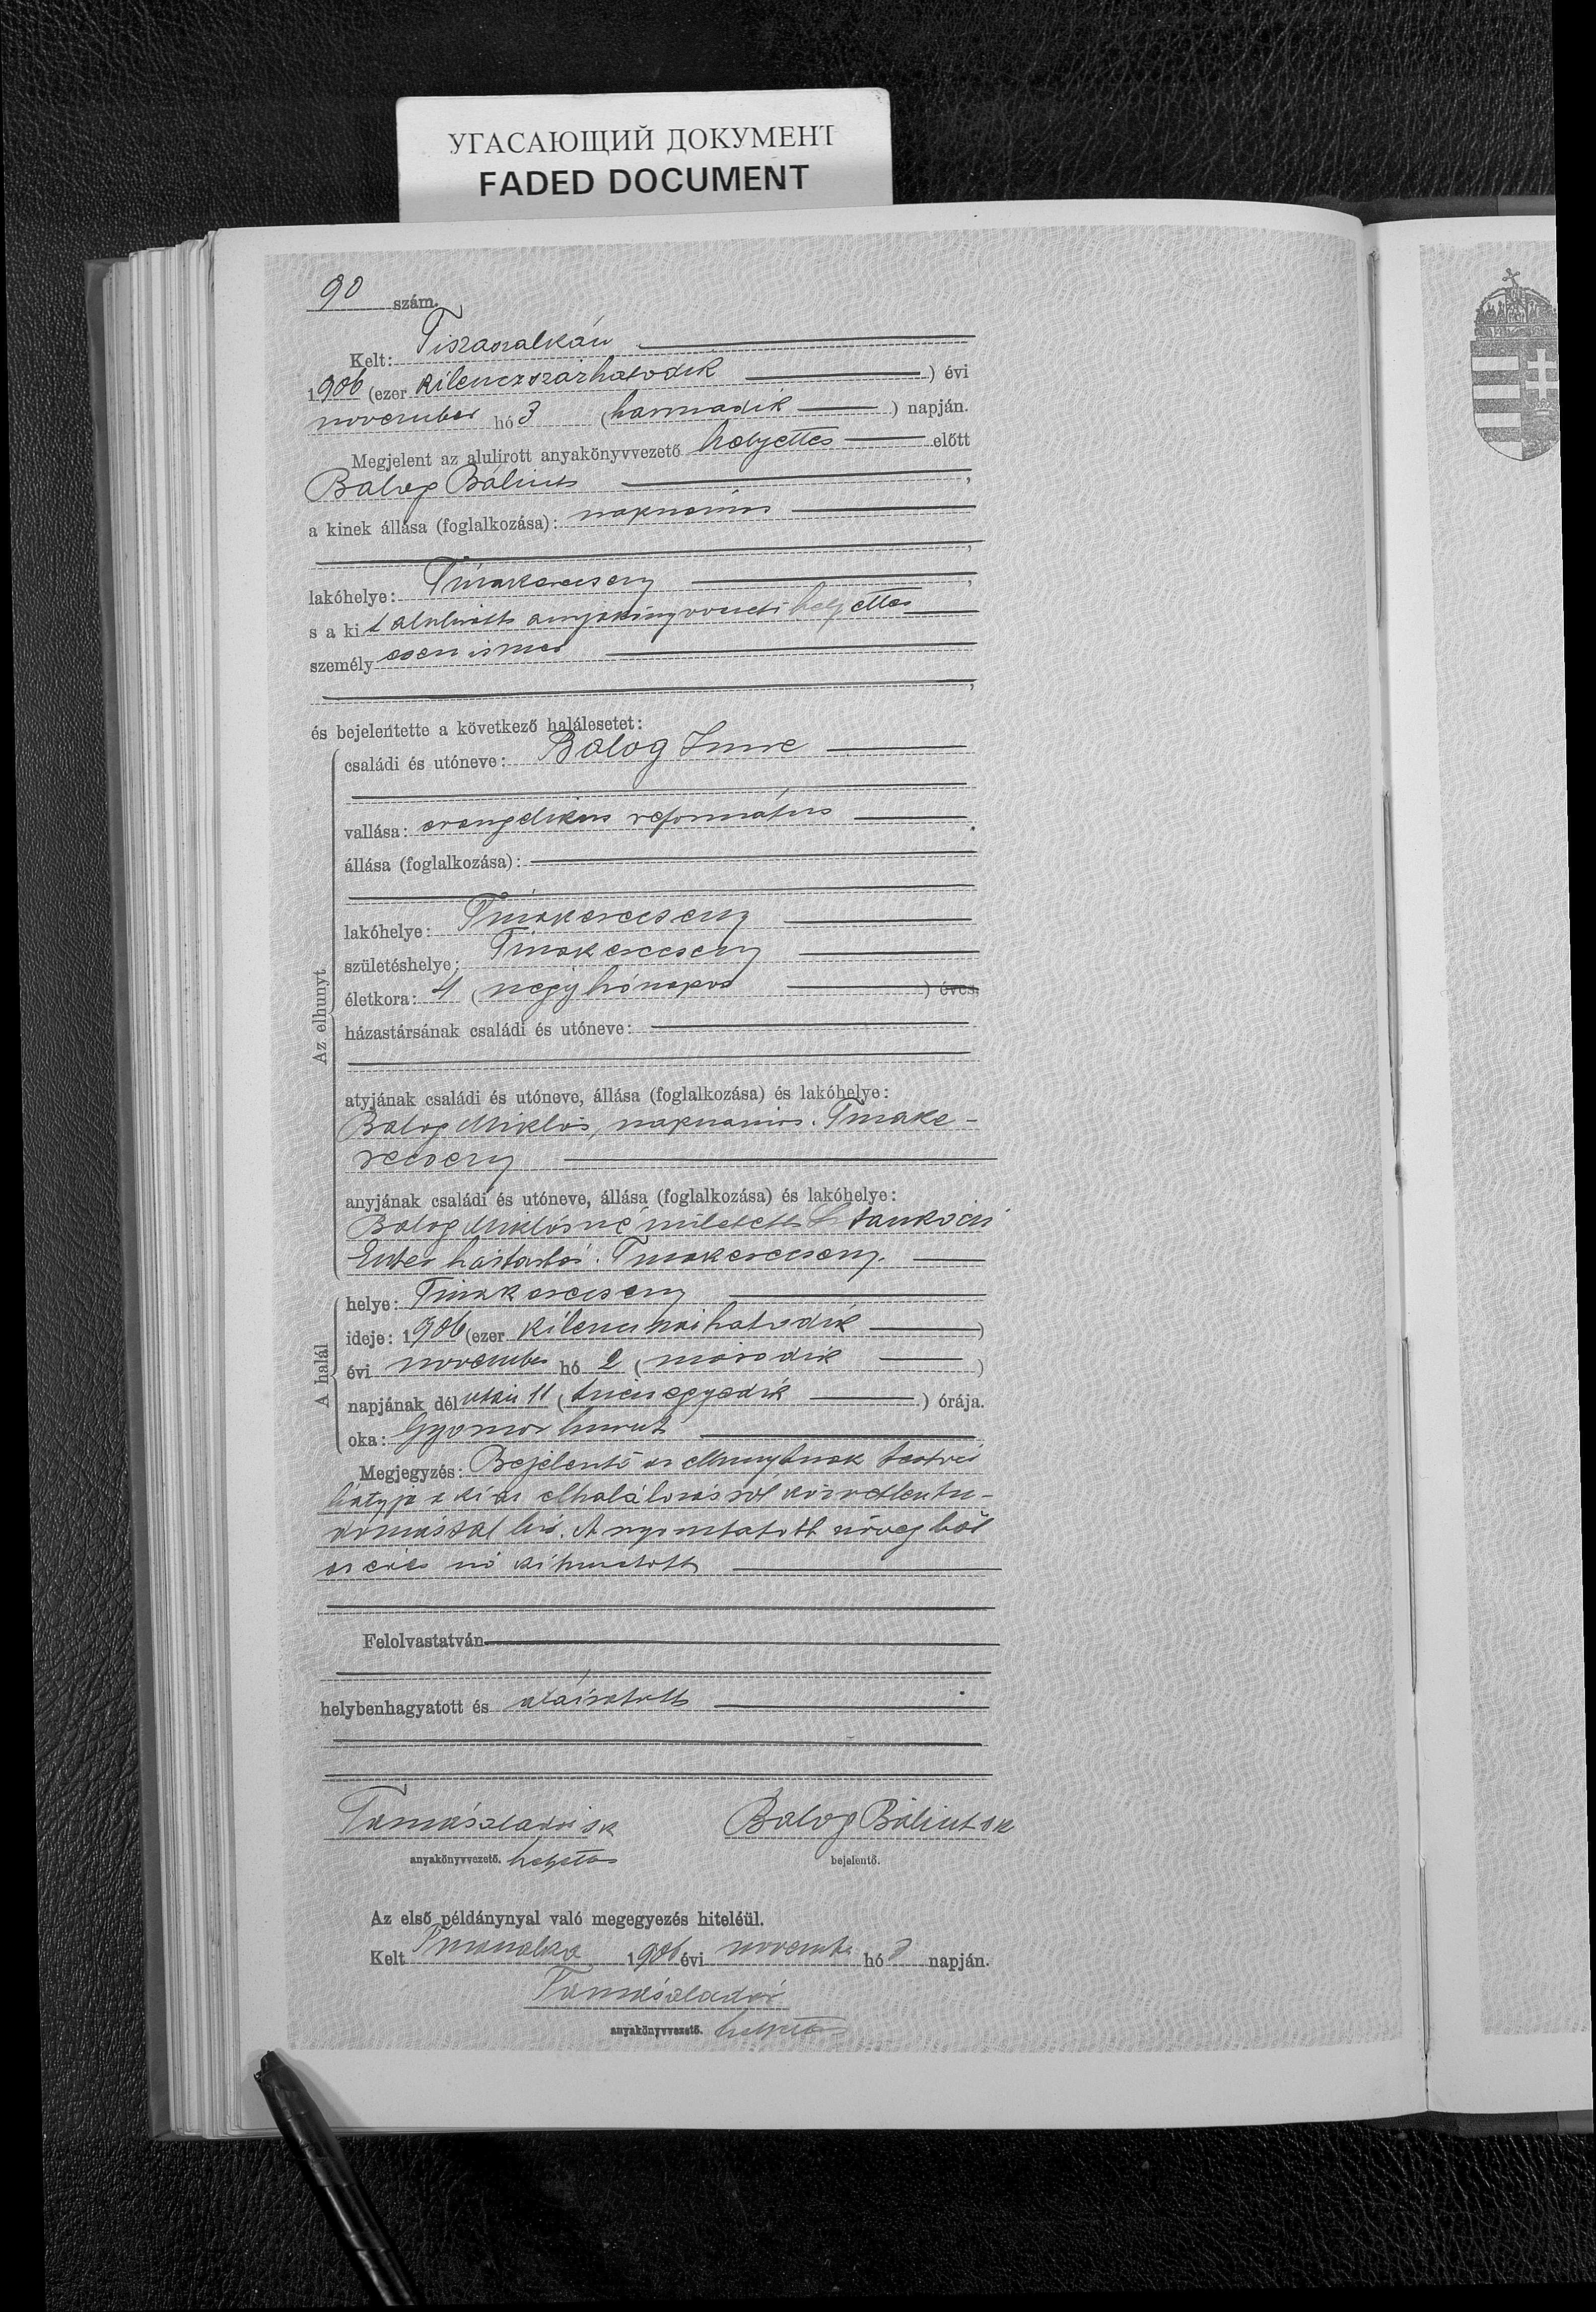 УГАСАЮЩИЙ ДОКУМЕНТ
FADED DOCUMENT
90 szám.
Kelt: Tiszaszalkán
1906 (ezer kilenczszázhatodik ) évi
november hó 3 (harmadik ) napján.
Megjelent az alulirott anyakönyvvezető helyettes előtt
Balog Bálint ,
a kinek állása (foglalkozása): napszámos
,
lakóhelye: Tiszakerecseny ,
s a kit alulirott anyakönyvvezető helyettes
személyesen ismer
,
és bejelentette a következő halálesetet:
Az elhunyt
családi és utóneve: Balog Imre
vallása: evangelikus református
állása (foglalkozása):
lakóhelye: Tiszakerecseny
születéshelye: Tiszakerecseny
életkora: 4 (négy hónapos ) éves.
házastársának családi és utóneve:
atyjának családi és utóneve, állása (foglalkozása) és lakóhelye:
Balog Miklós, napszámos. Tiszake-
recseny
anyjának családi és utóneve, állása (foglalkozása) és lakóhelye:
Balog Miklósné született
Eszter háztartás. Tiszakerecseny.
A halál
helye: Tiszakerecseny
ideje: 1906 (ezer kilenczszázhatodik )
évi november hó 2 (második )
napjának dél után 11 (tizenegyedik ) órája.
oka: Gyomor hurut
Megjegyzés: Bejelentő az elhunytnak testvér
bátyja a ki az elhalálozásról közvetlen tu-
domással bir. A nyomtatott szövegből
az éves szó kitöröltetett
Felolvastatván
helybenhagyatott és aláiratott
Balog Bálint sk
anyakönyvvezető. helyettes
bejelentő.
Az első példánynyal való megegyezés hiteléül.
Kelt Tiszaszalka 1906 évi november hó 3 napján.
anyakönyvvezető. helyettes